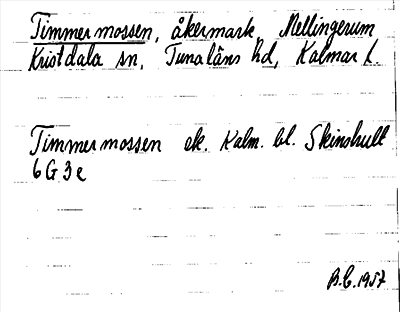 Timmermossen, åkermark, Mellingerum
Kristdala sn, Tunaläns hd, Kalmar l.
Timmermossen ek. Kalm. bl. Skinshult
6G3e
B.C. 1957